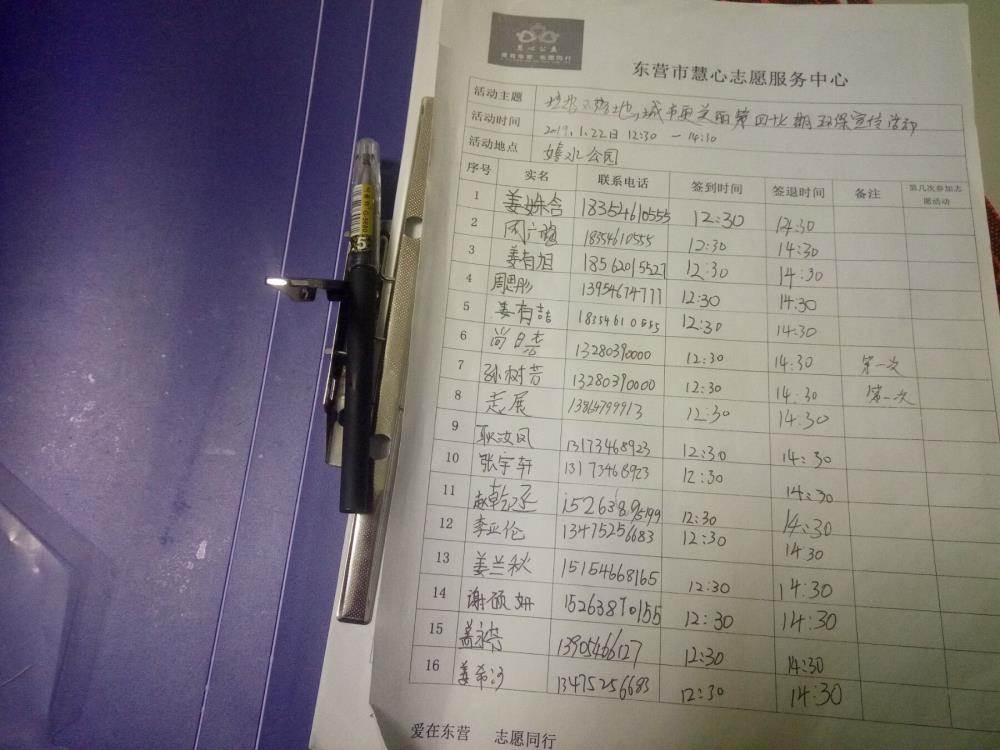 慧心公益
爱在东营 志愿同行
东营市慧心志愿服务中心
活动主题 城市更美丽第四十九期环保宣传活动
活动时间 2019.1.22日 12:30 — 14:30
活动地点 嬉水公园
序号 实名 联系电话 签到时间 签退时间 备注 第几次参加志愿活动
1 姜姝含 18354610555 12:30 14:30
2 周 18354610555 12:30 14:30
3 姜有旭 18562015527 12:30 14:30
4 周思彤 13954674777 12:30 14:30
5 姜有喆 18354610555 12:30 14:30
6 尚日 13280390000 12:30 14:30 第一次
7 孙树芳 13280390000 12:30 14:30 第一次
8 志展 13864799913 12:30 14:30
9 耿汝凤 13173468923 12:30 14:30
10 张宇轩 13173468923 12:30 14:30
11 赵乾丞 15263895199 12:30 14:30
12 李亚伦 13475256683 12:30 14:30
13 姜兰秋 15154668165 12:30 14:30
14 谢硕妍 15263870155 12:30 14:30
15 13905466127 12:30 14:30
16 姜希 13475256683 12:30 14:30
爱在东营 志愿同行